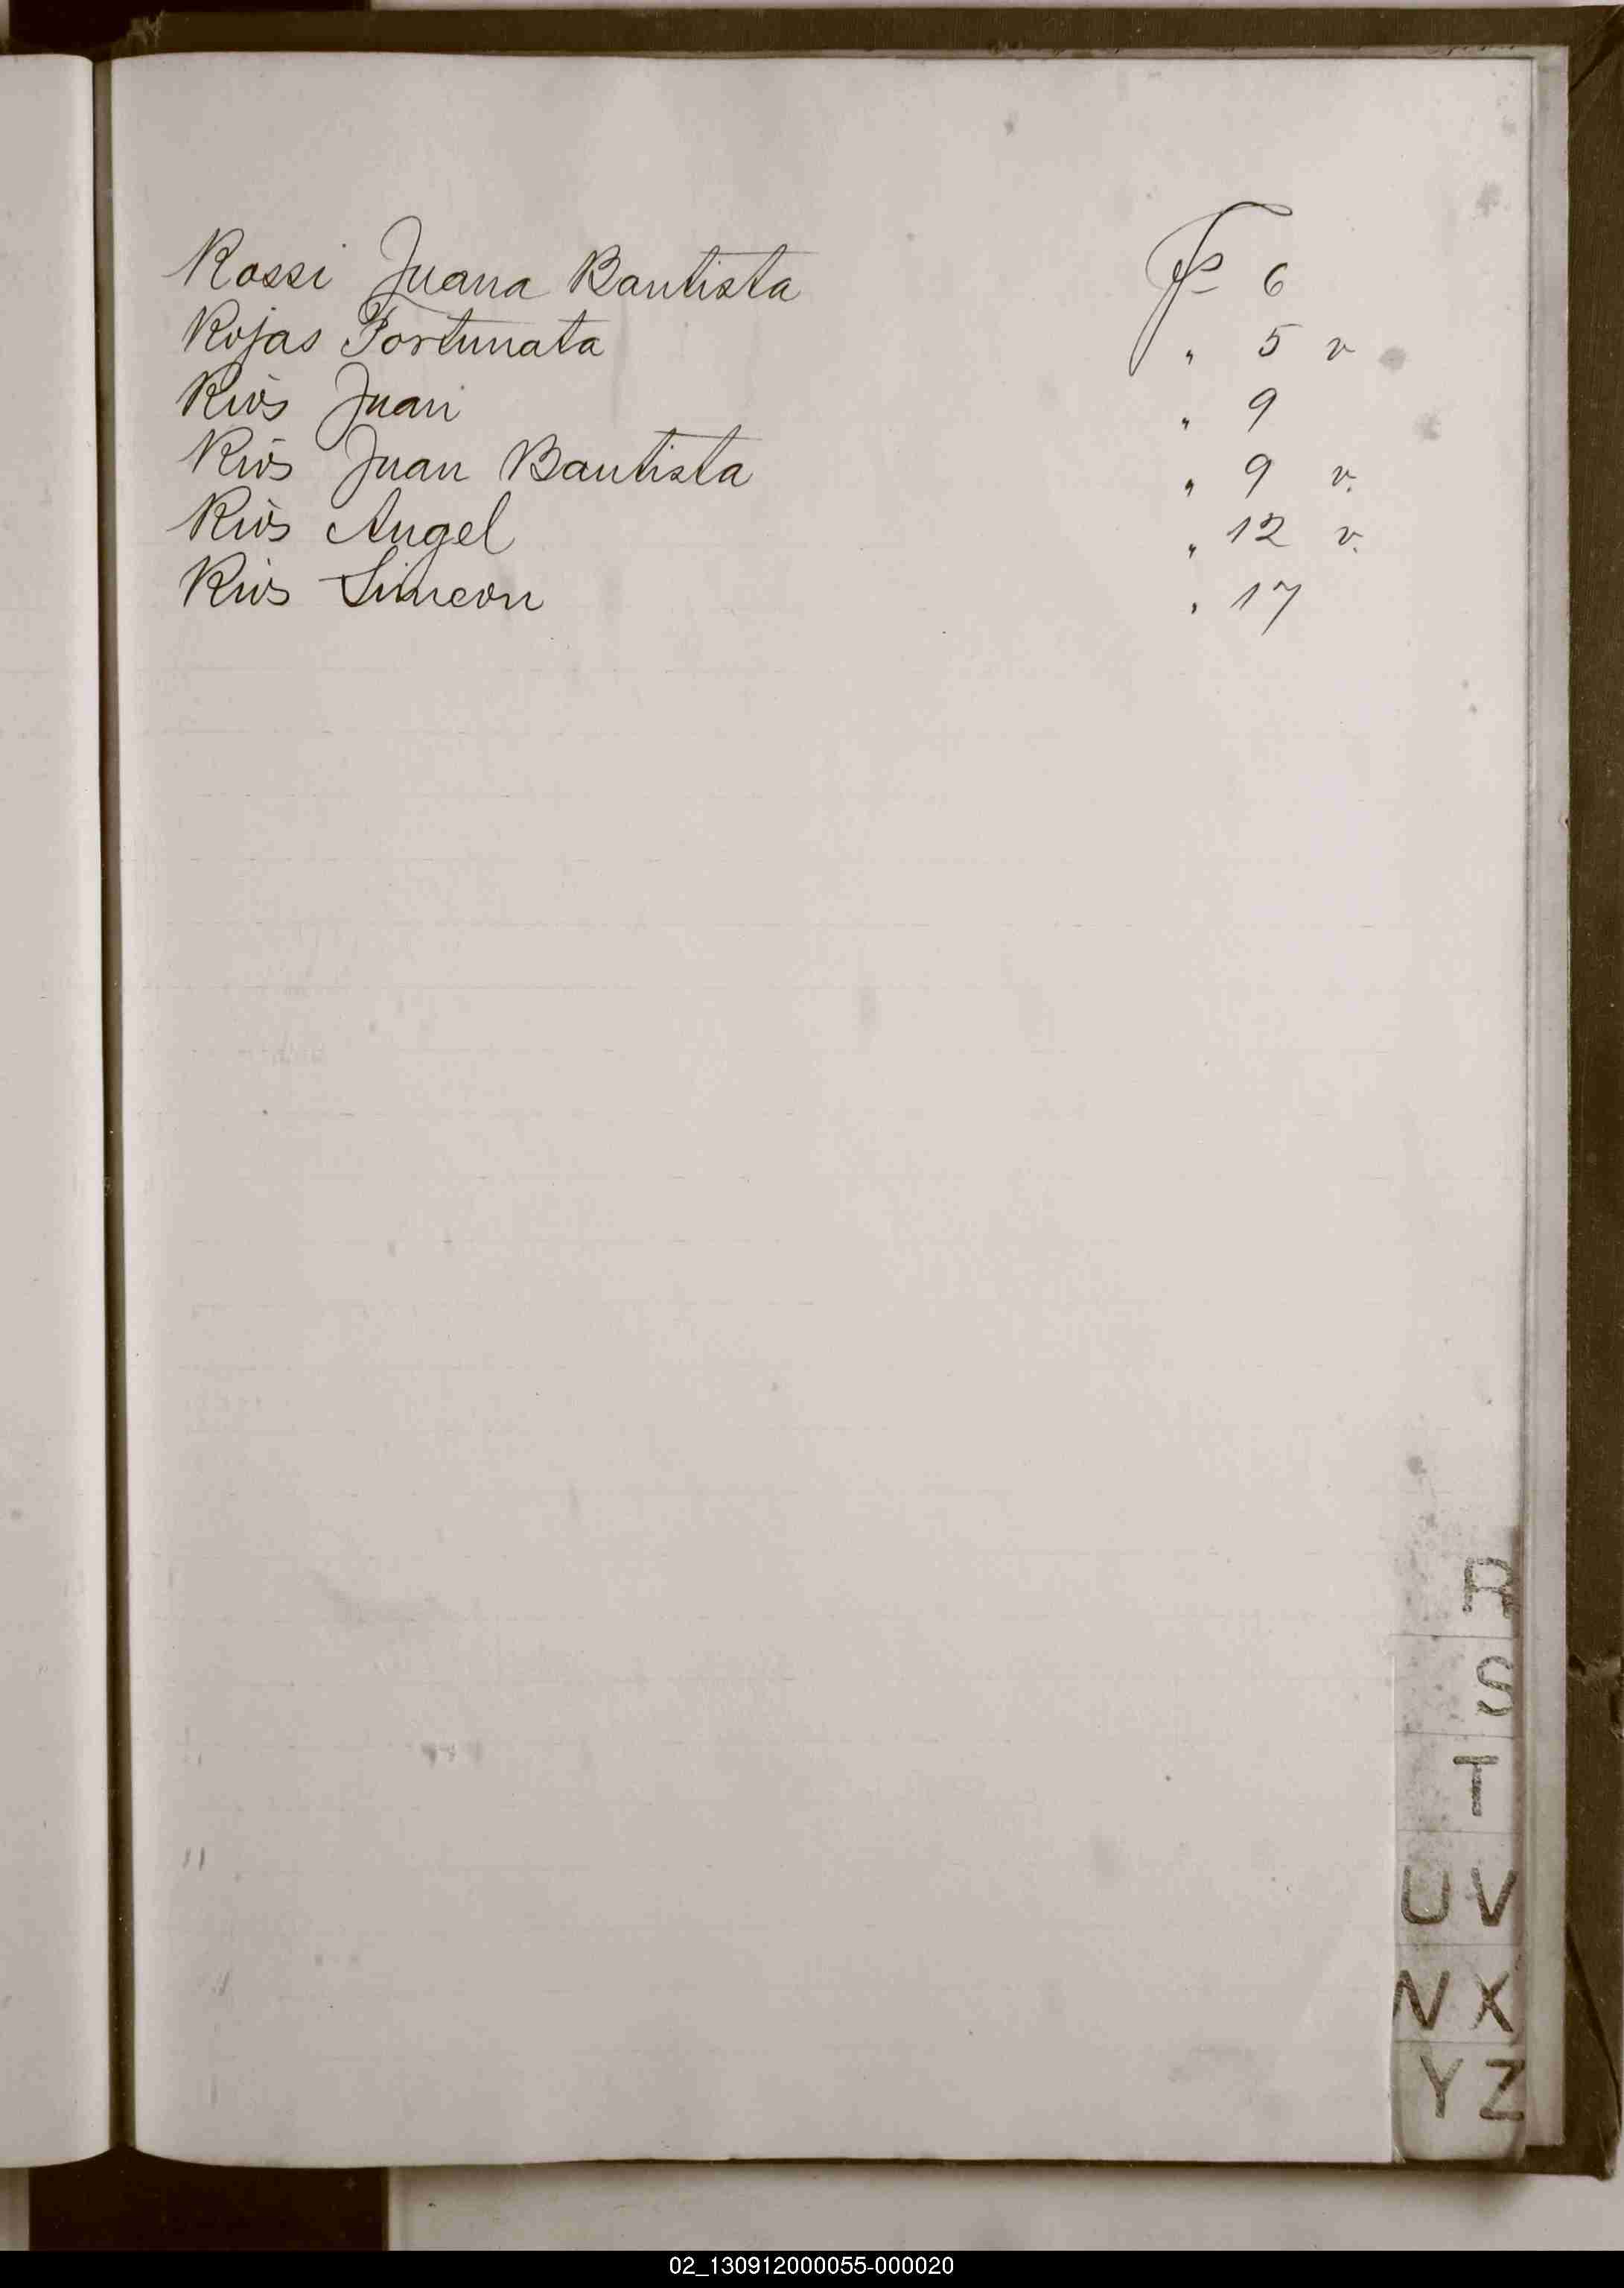 Rossi Juana Bautista Fs 6
Rojas Fortunata " 5 v
Rios Juan " 9
Rios Juan Bautista " 9 v.
Rios Angel " 12 v.
Rios Simeon " 17
R
S
T
U V
W X
Y Z
02_130912000055-000020